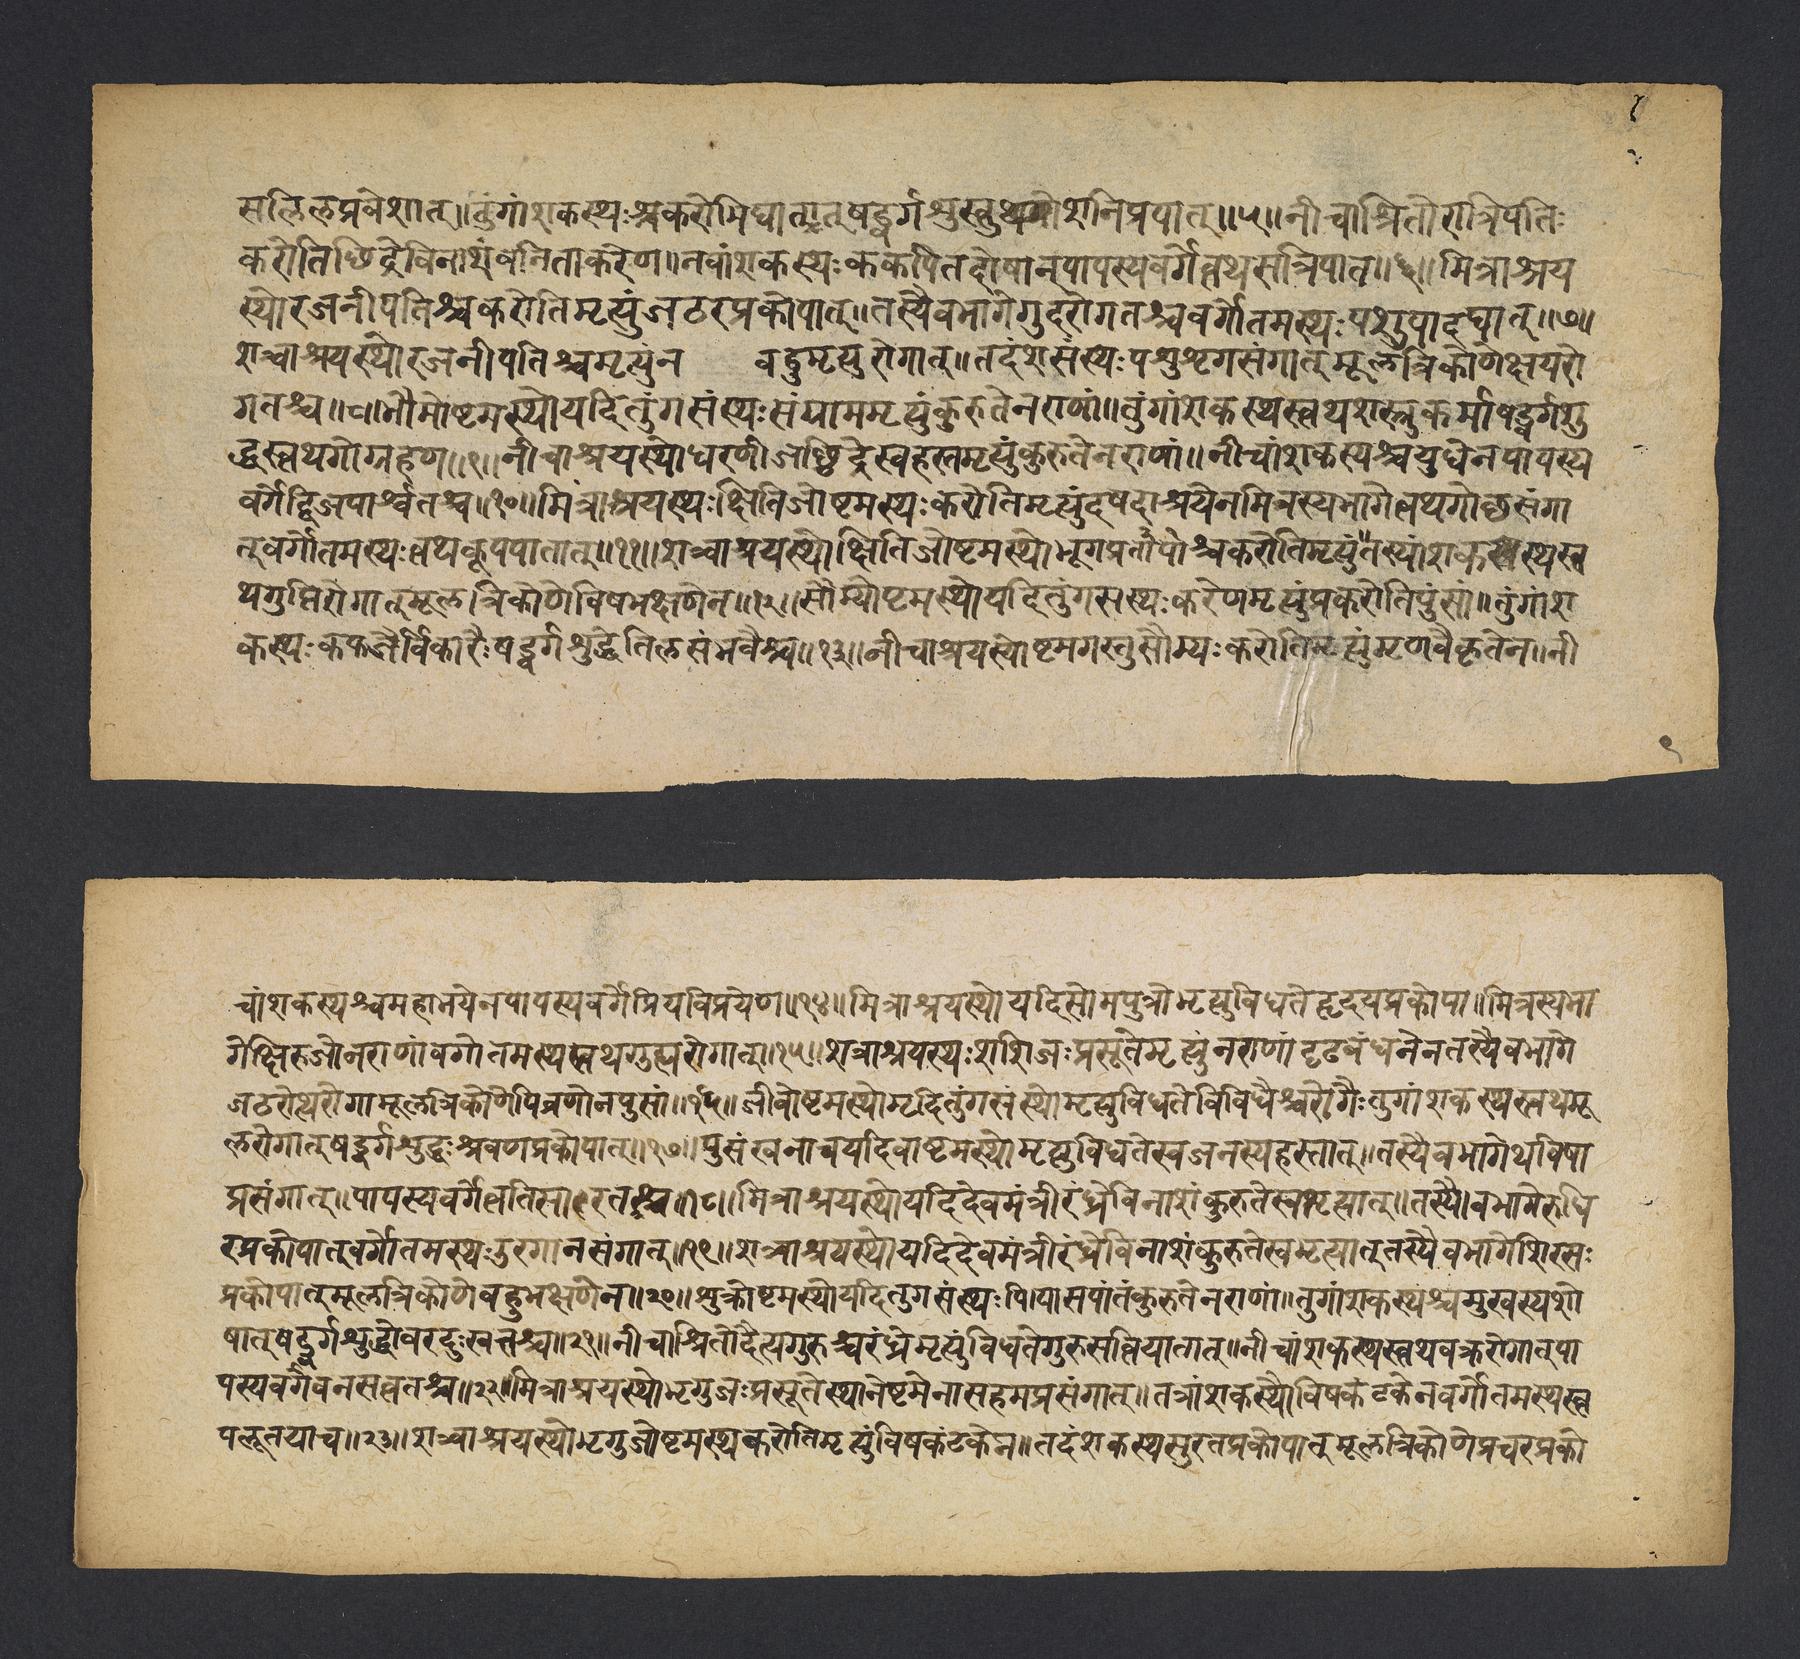 सलिलप्रवेशात्॥तुंगांशकस्थःश्वकरोभिघातात्षड्वर्गशुस्त्वथशनिप्रपातात्॥५॥नीचाश्रितोरात्रिपतिः
करोतिछिद्रेविनाशंवनिताकरेण॥नवांशकस्थःकफपित्तदोषान्पापस्यवर्गेत्वथसन्निपातात्॥६॥मित्राश्रय
स्थोरजनीपतिश्चकरोतिमृत्युंजठरप्रकोपात्॥तस्यैवभागेगुदरोगतश्चवर्गोत्तमस्थःपशुपादघातात्॥७॥
शत्र्वाश्रयस्थोरजनीपतिश्चमृत्युंन वहुमृत्युरोगात्॥तदंशसंस्थःपशुशृगसंगात्मूलत्रिकोणेक्षयरो
गतश्च॥८॥भौमोष्टमस्थोयदितुंगसंस्थःसंग्राममृत्युंकुरुतेनराणां॥तुंगांशकस्थस्त्वथशस्त्रकर्माषड्वर्गशु
द्धस्त्वथगोग्रहेण॥९॥नीचाश्रयस्थोधरणीजश्छिद्रेस्वहस्तमृत्युंकुरुतेनराणां॥नीचांशकस्थश्चयुधेनपापस्य
वर्गेद्विजपार्श्वतश्च॥१०॥मित्राश्रयस्थःक्षितिजोष्टमस्थःकरोतिमृत्युंदृषदाश्रयेनमित्रस्यभागेत्वथगोष्ठसंगा
त्वर्गोत्तमस्थःत्वथकूपपातात्॥११॥शत्र्वाश्रयस्थोक्षितिजोष्टमस्थोभृगप्रतापाश्चकरोतिमृत्युंतस्यांशकस्थस्त्व
थगुप्तिरोगात्मूलत्रिकोणेविषभक्षणेन॥१२॥सौम्योष्टमस्थोयदितुंगसस्थःकरेणमृत्युंप्रकरोतिपुंसां॥तुंगांश
कस्थःकफजैर्विकारैःषड्वर्गशुद्धेतिलसंभवैश्च॥१३॥नीचाश्रयस्थोष्टमगस्तुसौम्यःकरोतिमृत्युंमृणवैकृतेन॥नी
चांशकस्थश्चमहाभयेनपापस्यवर्गेप्रियविप्रयेण॥१४॥मित्राश्रयस्थोयदिसोमपुत्रोमृत्युविधतेहृदयप्रकोपा॥मित्रस्यभा
गेक्षिरुजोनराणांवर्गोतमस्थस्त्वथगुह्यरोगात्॥१५॥शत्राश्रयस्थःशशिजःप्रसूतेमृत्युंनराणांदृढवंधनेनतस्यैवभागे
जठरोत्थरोगामूलत्रिकोणेपिव्रणेनपुसां॥१६॥जीवोष्टमस्थोमृदितुंगसंस्थोमृत्युविधतेविविधैश्चरोगैःतुगांशकस्थस्त्वथमू
लरोगात्षड्वर्गशुद्धःश्रवणप्रकोपात्॥१७॥पुसंखनाचयदिवाष्टमस्थोमृत्युविधतेस्वजनस्यहस्तात्॥तस्यैवभागेथविषा
प्रसंगात्॥पापस्यवर्गेत्वतिसारतश्च॥१८॥मित्राश्रयस्थोयदिदेवमंत्रीरंध्रेविनाशंकुरुतेस्वभृत्यात्॥तस्यैवभागेरुधि
रप्रकोपात्वर्गोतमस्थःतुरगानसंगात्॥१९॥शत्र्वाश्रयस्थोयदिदेवमंत्रीरंध्रेविनाशंकुरुतेस्वभृत्यात्तस्यैवभागेशिरसः
प्रकोपात्मूलत्रिकोणेवहुभक्षणेन॥२०॥शुक्रोष्टमस्थोयदितुगसंस्थःपिपासपांतंकुरुतेनराणां॥तुगांशकस्थश्चमुखस्यशो
षात्षड्वर्गशुद्धोवरदुःखतश्च॥२१॥नीचाश्रितोदैत्यगुरुश्चरंध्रेमृत्युंविधतेगुरुसन्निपातात्॥नीचांशकस्थस्त्वथवक्ररोगात्पा
पस्यवर्गेवनसत्वतश्च॥२२॥मित्राश्रयस्थोभृगुजःप्रसूतेस्थानेष्टमेनासहमप्रसंगात्॥तत्रांशकस्थोविषकंटकेनवर्गोतमस्थस्त्व
पलूतयाच॥२३॥शत्र्वाश्रयस्थोभृगुजोष्टमस्थकरोतिमृत्युंविषकंटकेन॥तदंशकस्थसुरतप्रकोपात्मूलत्रिकोणेप्रचरप्रको